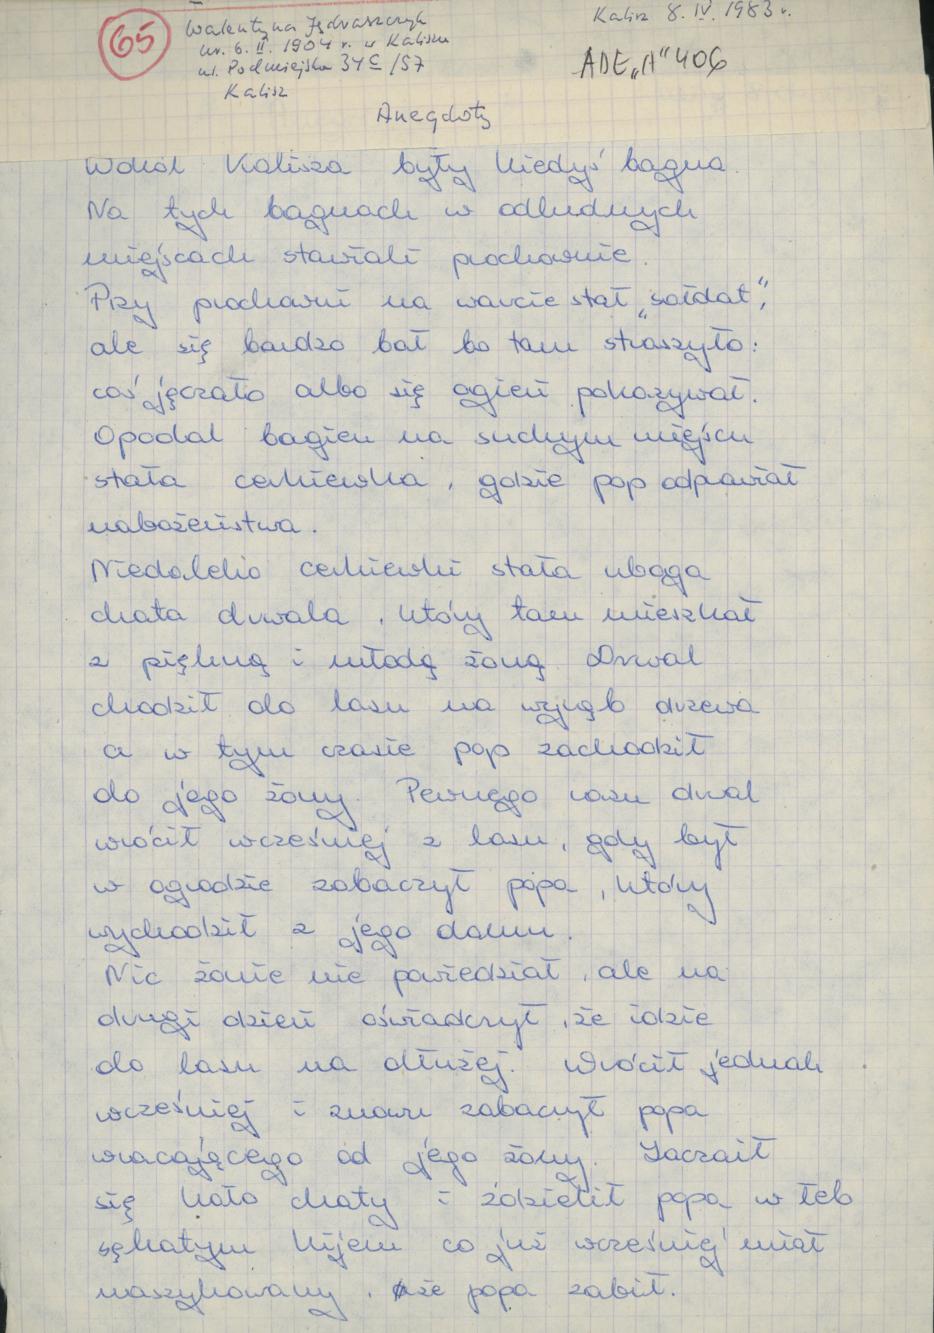 65
Walentyna Jędraszczyk
ur. 6. II. 1904 r. w Kaliszu
ul. Podmiejska 34C/57
Kalisz
Kalisz 8. IV. 1983 r.
ADE„A" 406
Anegdoty
Wokół Kalisza były kiedyś bagna.
Na tych bagnach w odludnych
miejscach stawiali prochownie.
Przy prochowni na warcie stał „sołdat",
ale się bardzo bał bo tam straszyło:
coś jęczało albo się ogień pokazywał.
Opodal bagien na suchym miejscu
stała cerkiewka, gdzie pop odprawiał
nabożeństwa.
Niedaleko cerkiewki stała uboga
chata drwala, który tam mieszkał
z piękną i młodą żoną. Drwal
chodził do lasu na wyrąb drzewa
a w tym czasie pop zachodził
do jego żony. Pewnego razu drwal
wrócił wcześniej z lasu, gdy był
w ogrodzie zobaczył popa, który
wychodził z jego domu.
Nic żonie nie powiedział, ale na
drugi dzień oświadczył, że idzie
do lasu na dłużej. Wrócił jednak
wcześniej i znowu zobaczył popa
wracającego od jego żony. Zaczaił
się koło chaty i zdzielił popa w łeb
sękatym kijem co już wcześniej miał
naszykowany, że popa zabił.